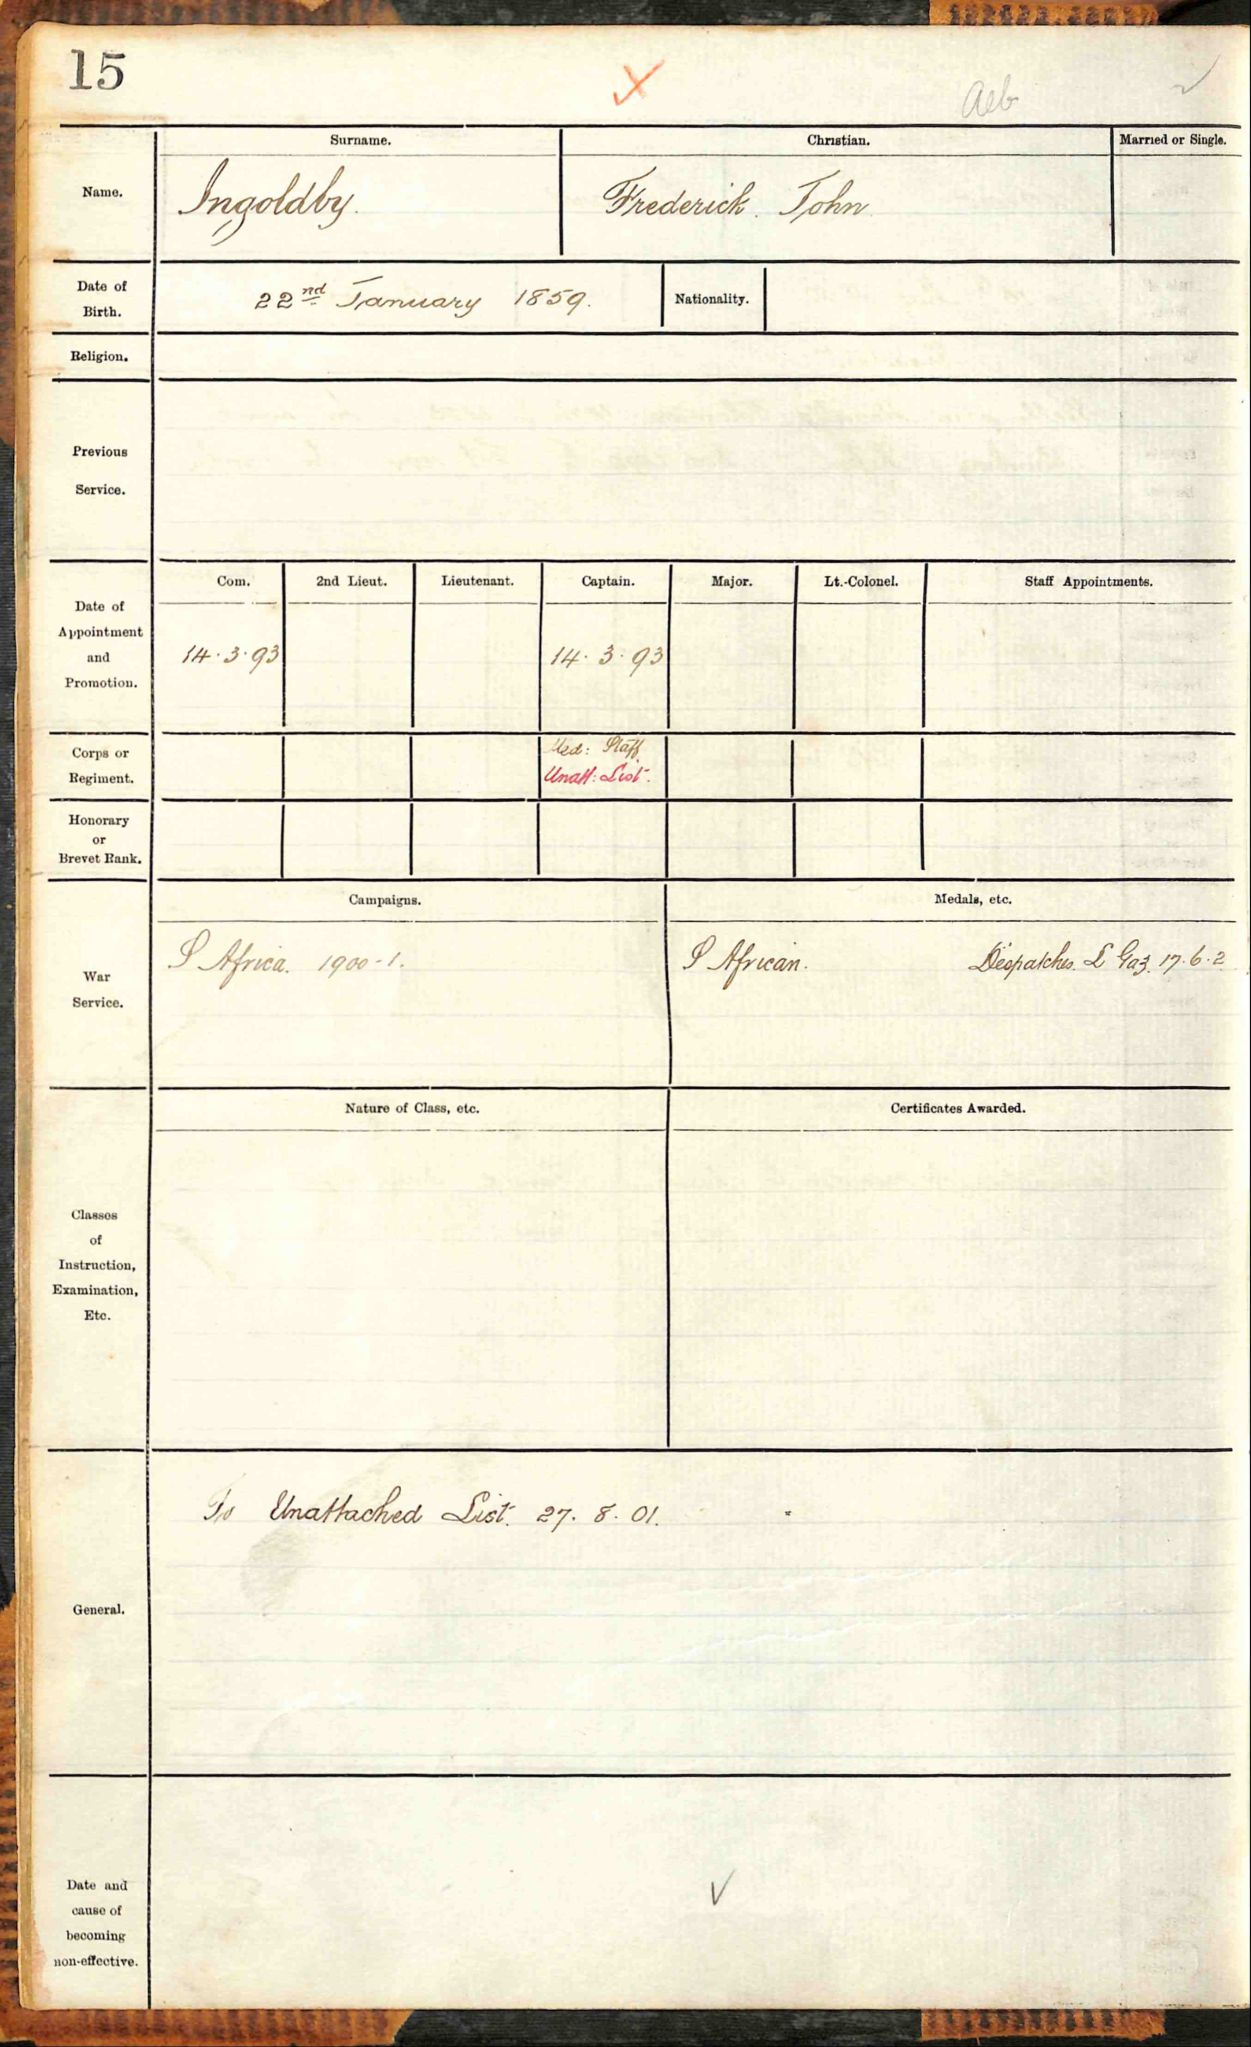 15
aeb
Surname. Christian. Married or Single.
Name. Ingoldby. Frederick. John.
Date of Birth. 22nd January 1859. Nationality.
Religion.
Previous
Service.
Com. 2nd Lieut. Lieutenant. Captain. Major. Lt.-Colonel. Staff Appointments.
Date of
Appointment
and
Promotion.
14.3.93 14.3.93
Corps or
Regiment.
Med: Staff
Unatt: List.
Honorary
or
Brevet Rank.
Campaigns. Medals, etc.
War
Service.
S Africa. 1900-1. S African. Despatches. L Gaz. 17.6.2
Nature of Class, etc. Certificates Awarded.
Classes
of
Instruction,
Examination,
Etc.
To Unattached List. 27.8.01.
General.
Date and
cause of
becoming
non-effective.